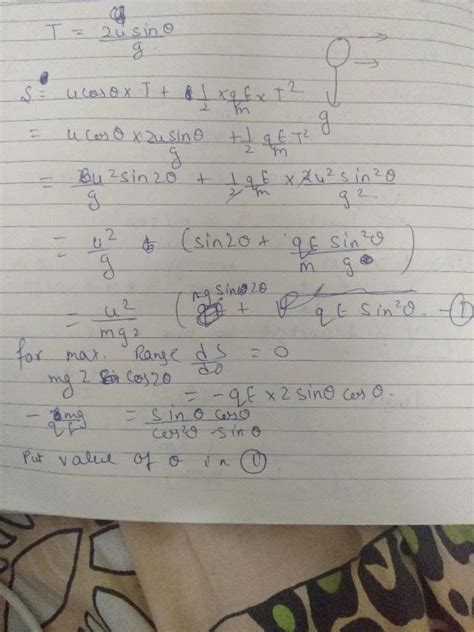 T = 2u sinθ / g
g
S = u cosθ x T + 1/2 x qE/m x T²
= u cosθ x 2u sinθ / g + 1/2 qE/m T²
= u² sin2θ / g + 1/2 qE/m x 2u² sin²θ / g²
= u²/g (sin2θ + qE sin²θ / m g)
= u²/mg² (mg sin2θ + qE sin²θ - ①
for max. Range dS/dθ = 0
mg 2 cos2θ = -qE x 2 sinθ cosθ.
- mg/qE = sinθ cosθ / cos²θ - sinθ
Put value of θ in ①